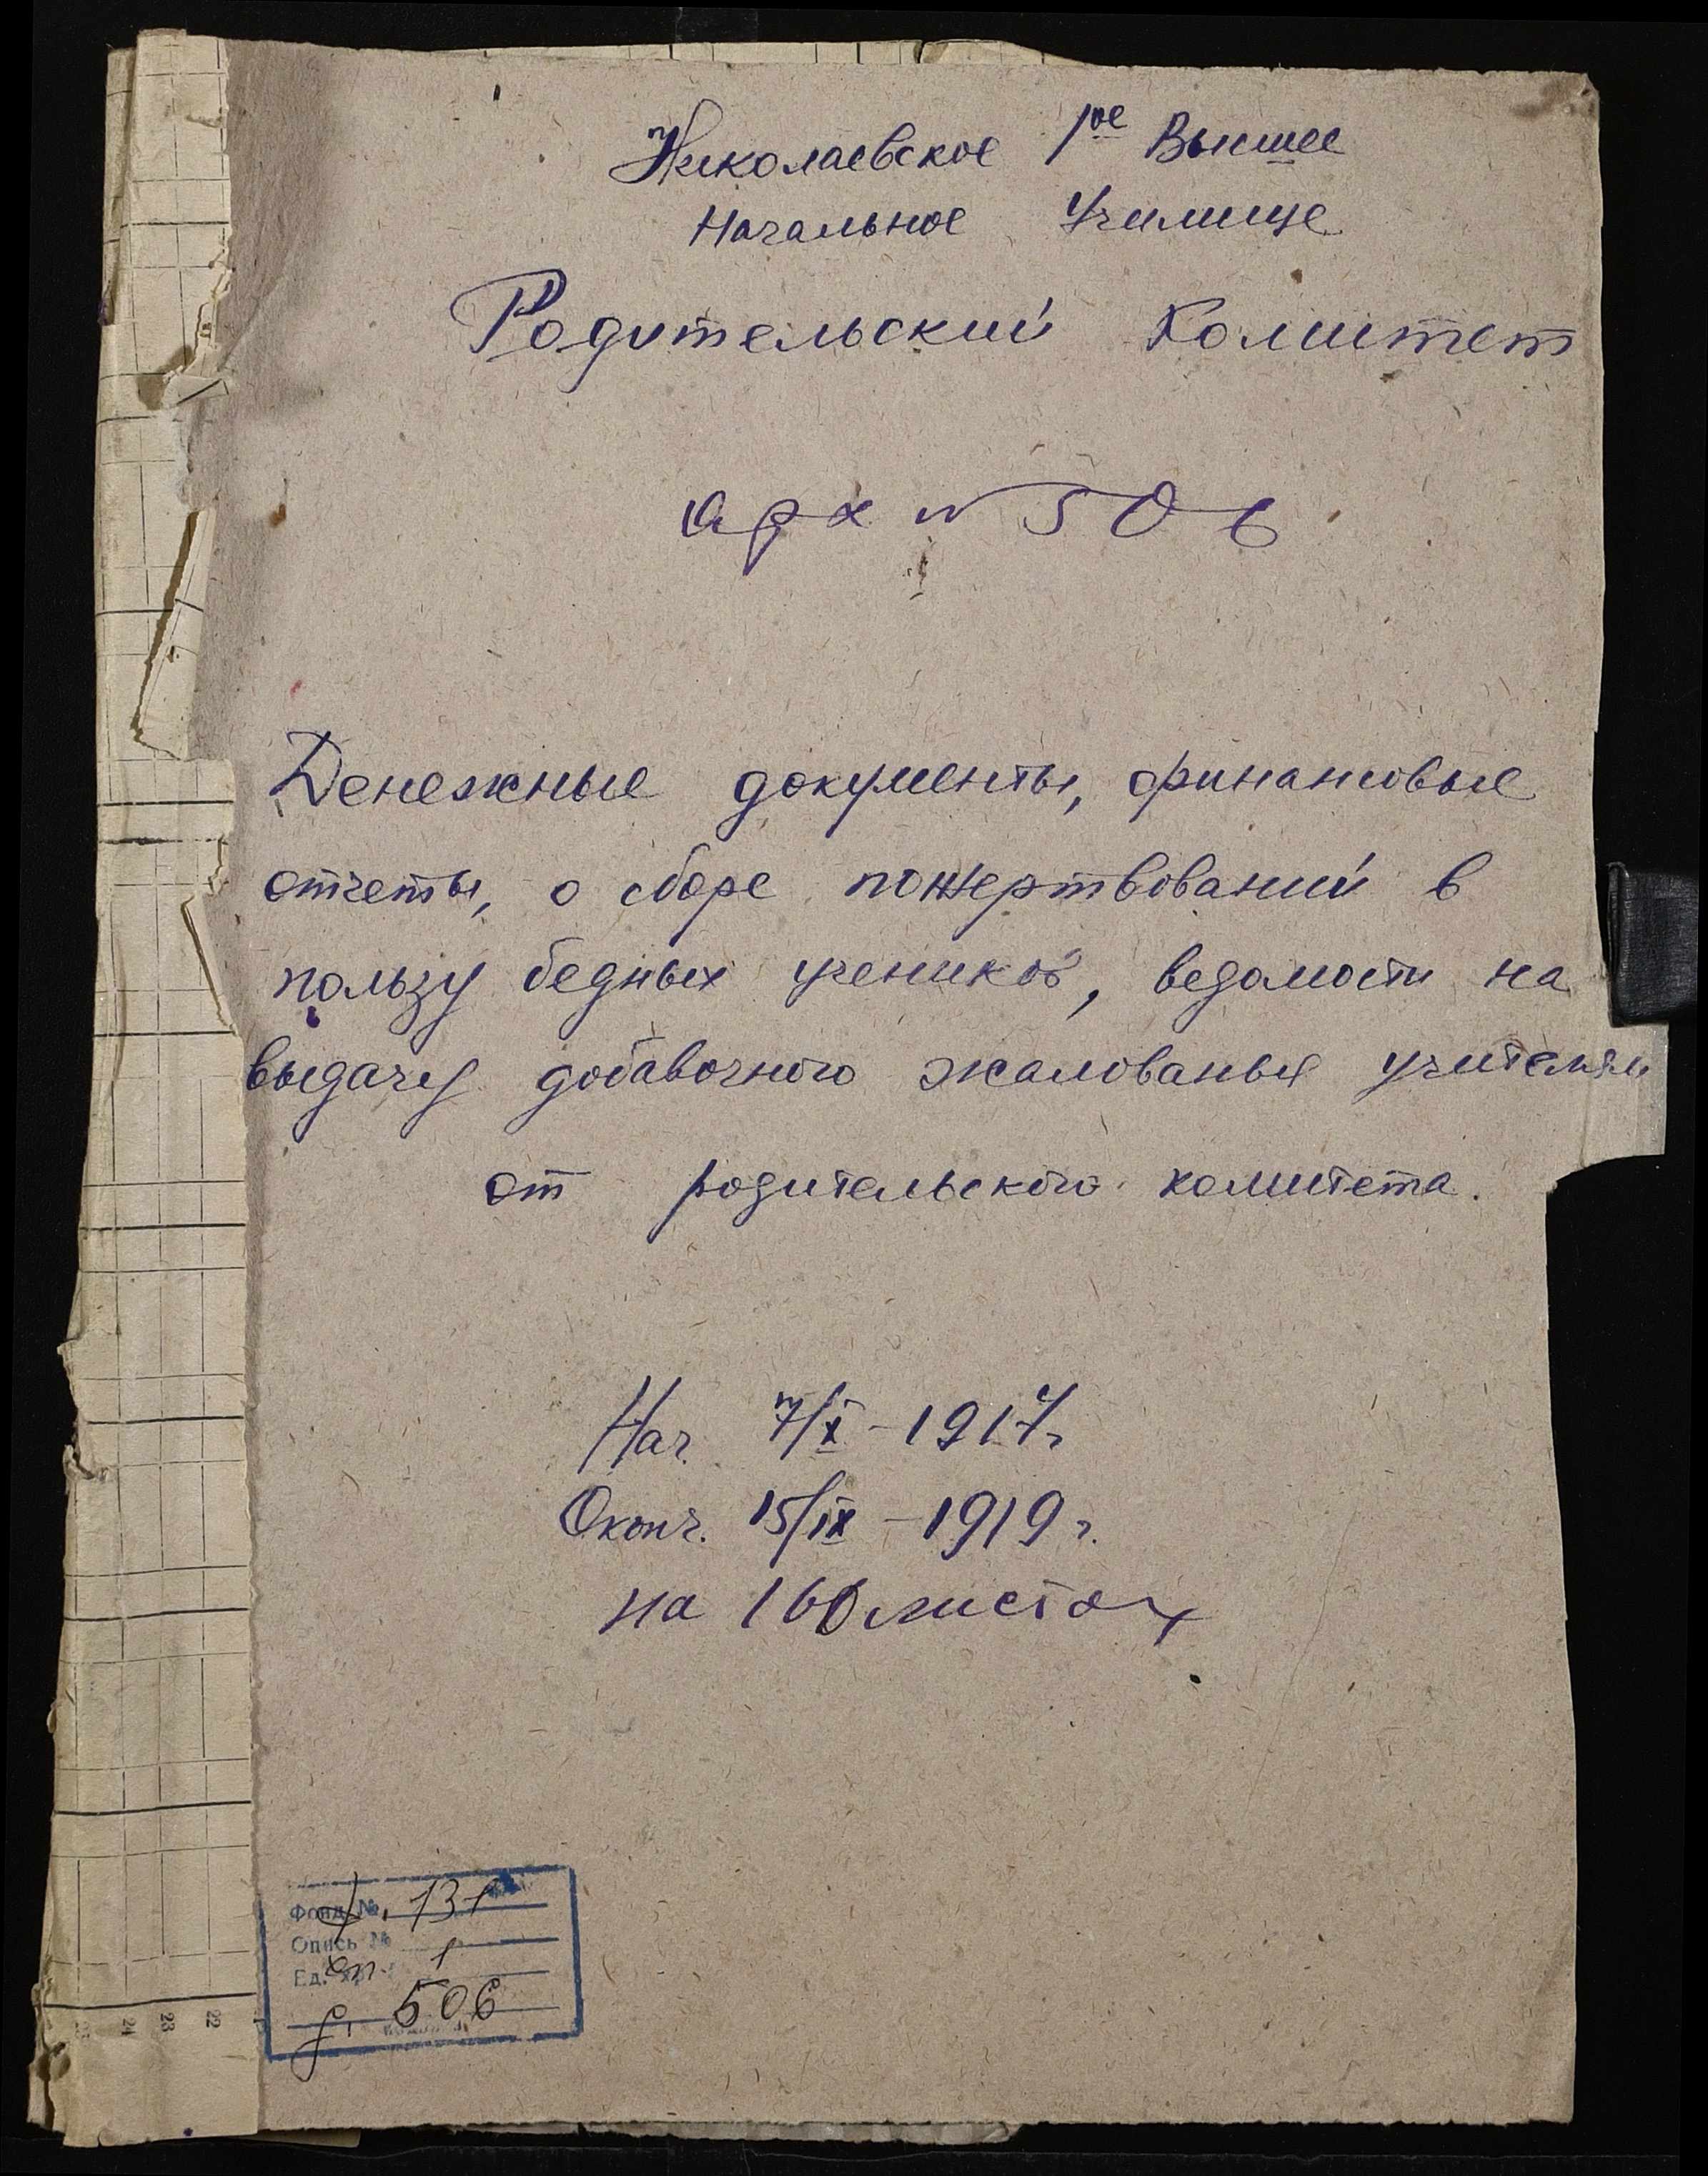 Николаевское 1ое Высшее
Начальное Училище
Родительский Комитет
арх № 506
Денежные документы, финансовые
отчеты, о сборе пожертвований в
пользу бедных учеников, ведомости на
выдачу добавочного жалованья учителям
от родительского комитета.
Нач. 7/X - 1917 г
Оконч. 15/IX - 1919 г.
на 160 листах
Фонд № ф. 131
Опись №
Ед. оп. 1
д. 506
24 23 22